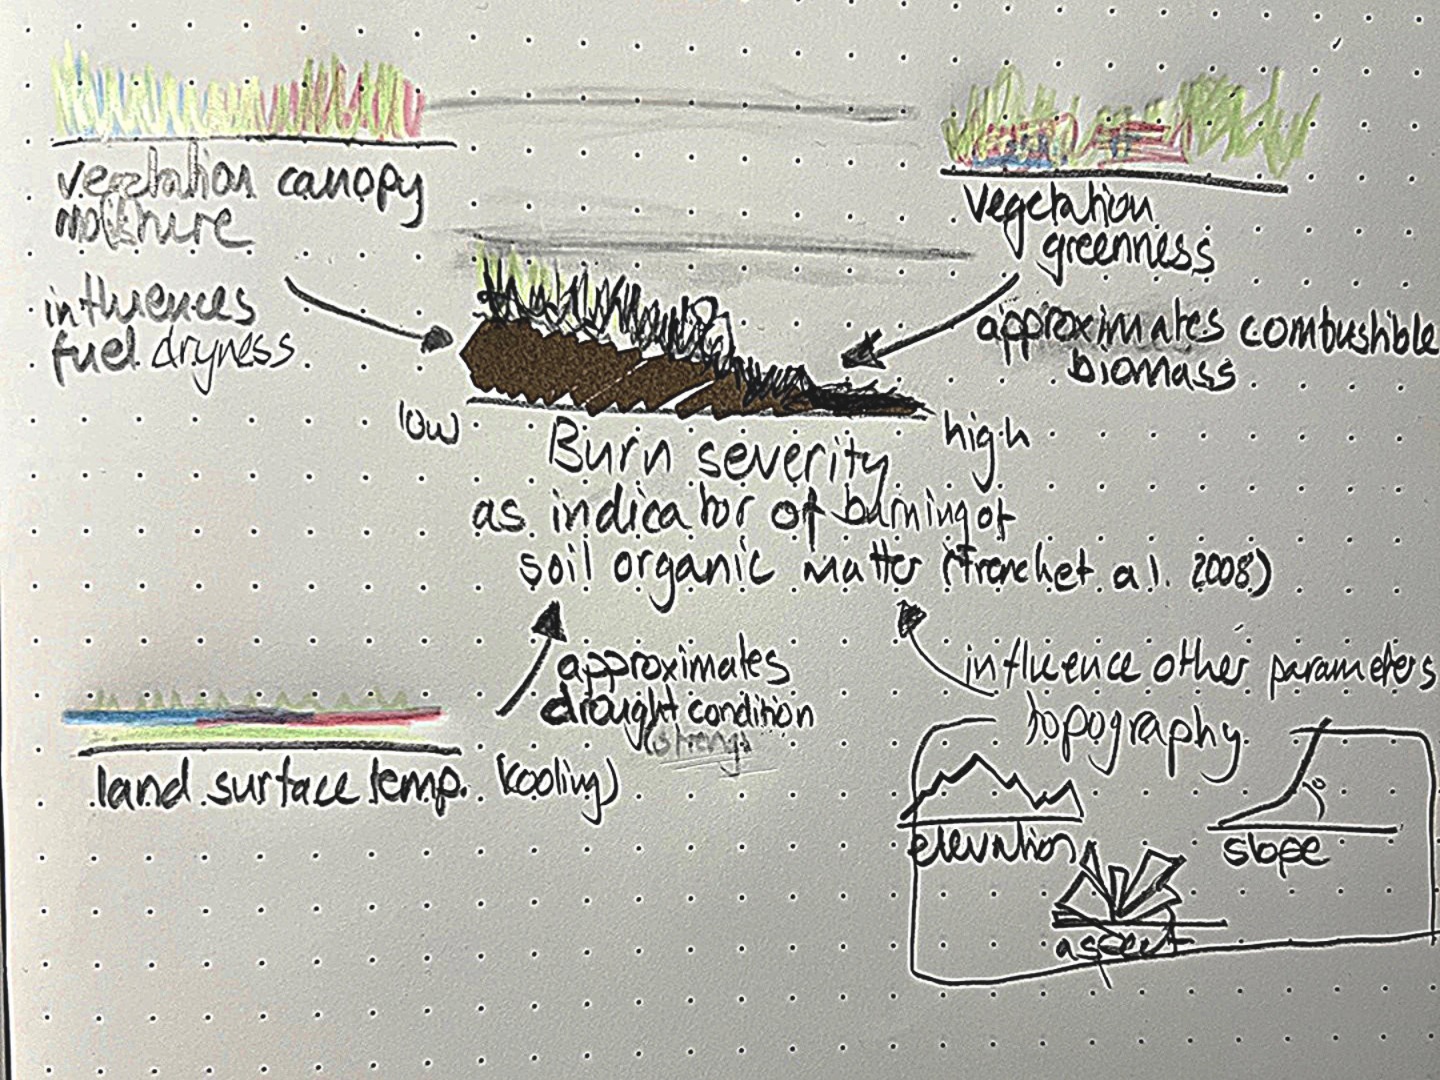 vegetation canopy
moisture
influences
fuel dryness
vegetation
greenness
approximates combustible
biomass
low
high
Burn severity
as indicator of burning of
soil organic matter (French et al. 2008)
approximates
drought condition
land surface temp. (cooling)
influence other parameters
topography
elevation
slope
aspect